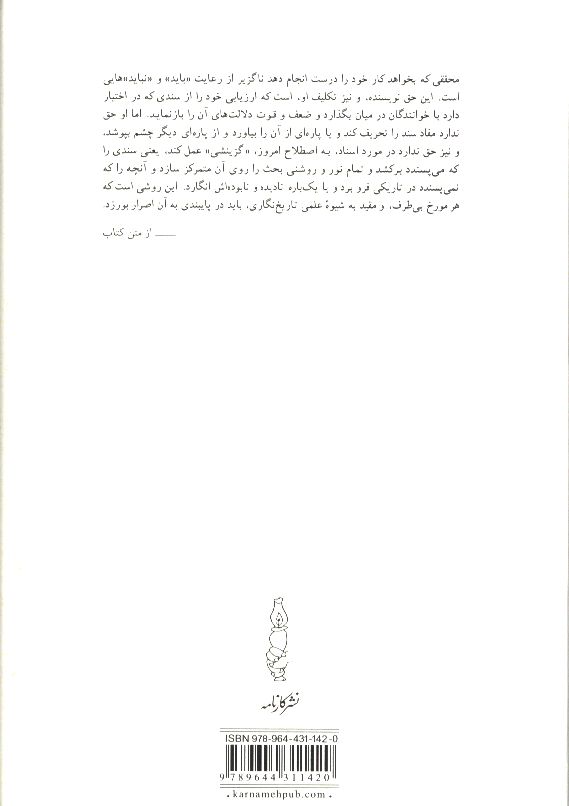 محققی که بخواهد کار خود را درست انجام دهد ناگزیر از رعایت «باید» و «نباید»هایی
است. این حق نویسنده، و نیز تکلیف او، است که ارزیابی خود را از سندی که در اختیار
دارد با خوانندگان در میان بگذارد و ضعف و قوت دلالت‌های آن را بازنماید. اما او حق
ندارد مفاد سند را تحریف کند و یا پاره‌ای از آن را بیاورد و از پاره‌ای دیگر چشم بپوشد.
و نیز حق ندارد در مورد اسناد، به اصطلاح امروز، «گزینشی» عمل کند. یعنی سندی را
که می‌پسندد برکشد و تمام نور و روشنی بحث را روی آن متمرکز سازد و آنچه را که
نمی‌پسندد در تاریکی فرو برد و یا یک‌باره نادیده و نابوده‌اش انگارد. این روشی است که
هر مورخ بی‌طرف، و مقید به شیوهٔ علمی تاریخ‌نگاری، باید در پایبندی به آن اصرار بورزد.
—— از متن کتاب
نشر کارنامه
ISBN 978-964-431-142-0
9 789644 311420
. karnamehpub.com .